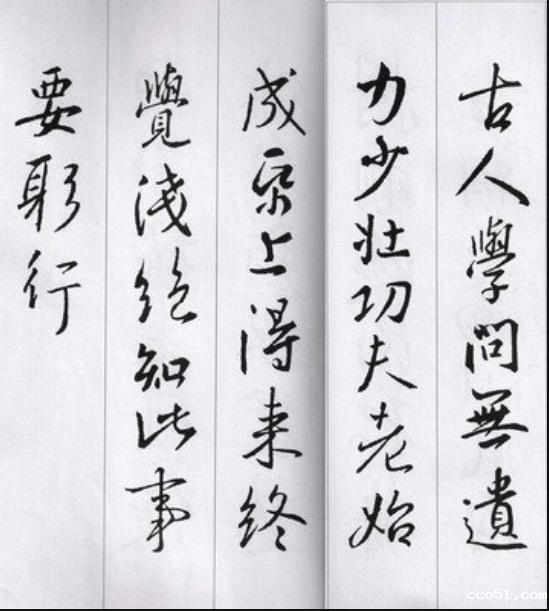 古人學問無遺
力少壯功夫老始
成帋上得来終
覺淺絕知此事
要躬行
cco51.com